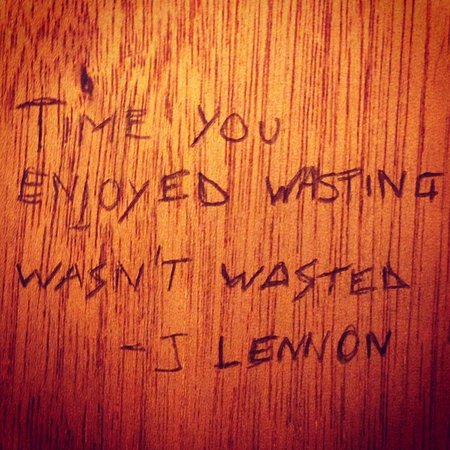 TIME YOU
ENJOYED WASTING
WASN'T WASTED
- J LENNON